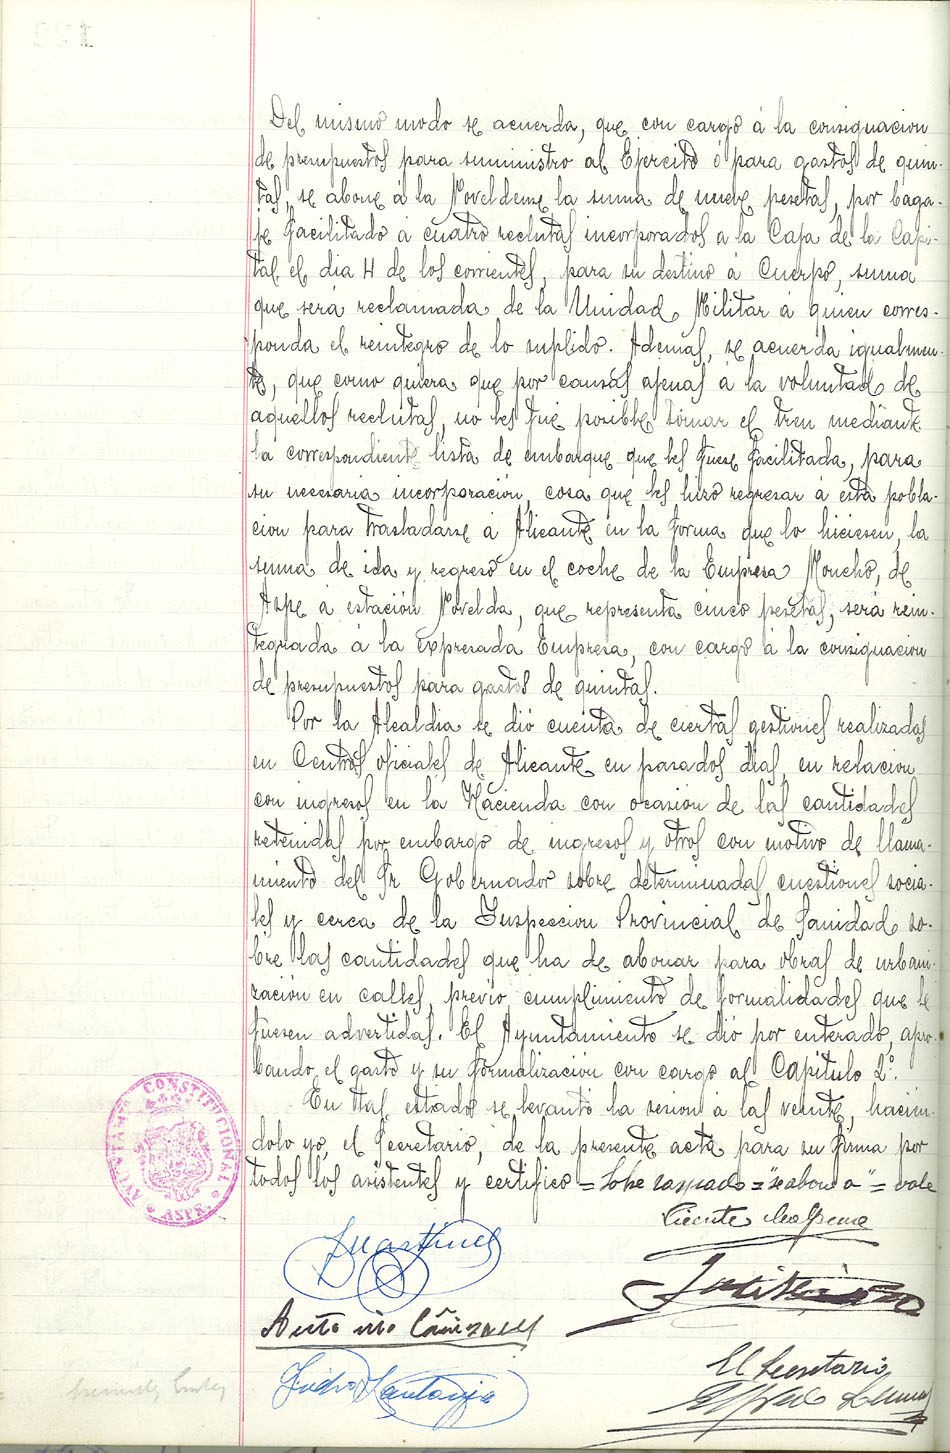 Del mismo modo se acuerda, que con cargo á la consignacion
de presupuestos para suministro al Ejercito ó para gastos de quin-
tas, se abone á la Noveldense la suma de nueve pesetas, por baga-
je facilitado á cuatro reclutas incorporados a la Caja de la Capi-
tal el dia 4 de los corrientes, para su destino á Cuerpo, suma
que será reclamada de la Unidad Militar á quien corres-
ponda el reintegro de lo suplido. Ademas, se acuerda igualmen-
te, que como quiera que por causas ajenas á la voluntad de
aquellos reclutas, no les fué posible tomar el tren mediante
la correspondiente lista de embarque que les fuese facilitada, para
su necesaria incorporación, cosa que les hizo regresar á esta pobla-
cion para trasladarse á Alicante en la forma que lo hiciesen, la
suma de ida y regreso en el coche de la Empresa Moncho, de
Aspe a estación Novelda, que representa cinco pesetas, será rein-
tegrada á la expresada Empresa, con cargo á la consignacion
de presupuestos para gastos de quintas.
Por la Alcaldia se dió cuenta de ciertas gestiones realizadas
en Centros oficiales de Alicante en pasados dias, en relacion
con ingresos en la Hacienda con ocasión de las cantidades
retenidas por embargo de ingresos y otros con motivo de llama-
miento del Sr Gobernador sobre determinadas cuestiones socia-
les y cerca de la Inspeccion Provincial de Sanidad so-
bre las cantidades que ha de abonar para obras de urbani-
zación en calles, previo cumplimiento de formalidades que le
fuesen advertidas. El Ayuntamiento se dió por enterado, apro-
bando, el gasto y su formalización con cargo al Capitulo 2º.
En tal estado se levantó la sesion á las veinte, hacien-
dolo yo, el Secretario, de la presente acta para su firma por
todos los asistentes y certifico = Sobre raspado = "se abone a" = vale
AYUNTAMTO CONSTITUCIONAL
ASPE
Vicente
Martinez
Antonio Cañizares
Isidro Santonja
El Secretario
Alfredo